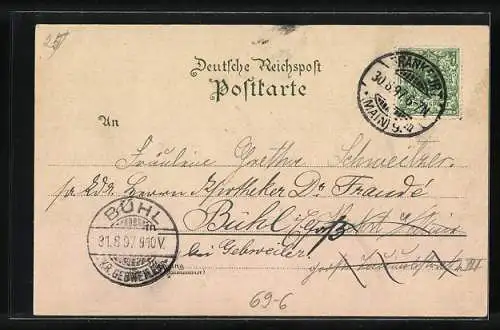 251
Deutsche Reichspost
Postkarte
FRANKFURT
30.8.97.6-7N
(MAIN) 9.
An
Fräulein Grethe Schweitzer
Herrn Apotheker Dr. Fraudé
Bühl
bei Gebweiler
BÜHL
31.8.97 9-10V.
(KR. GEBWEILER)
69-6